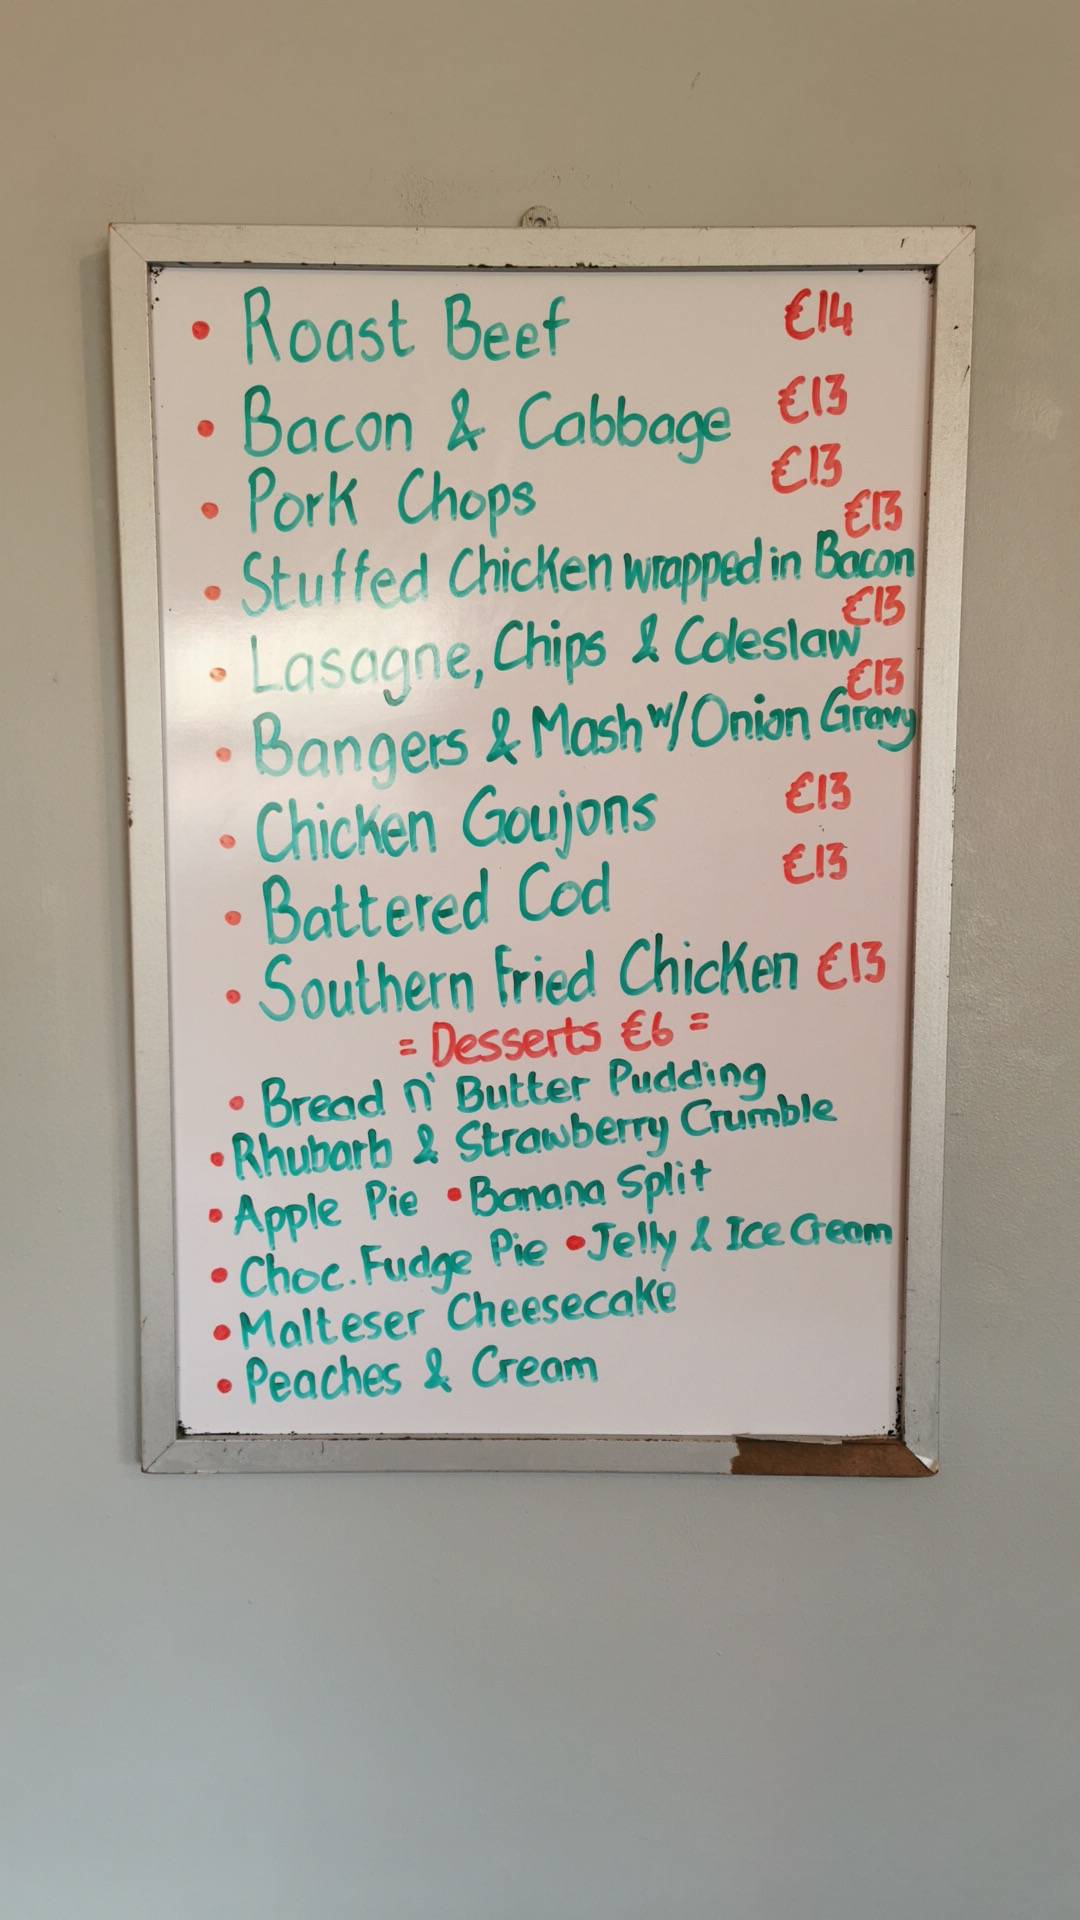 • Roast Beef €14
• Bacon & Cabbage €13
• Pork Chops €13
• Stuffed Chicken wrapped in Bacon €13
• Lasagne, Chips & Coleslaw €13
• Bangers & Mash w/ Onion Gravy €13
• Chicken Goujons €13
• Battered Cod €13
• Southern Fried Chicken €13
= Desserts €6 =
• Bread n' Butter Pudding
• Rhubarb & Strawberry Crumble
• Apple Pie • Banana Split
• Choc. Fudge Pie • Jelly & Ice Cream
• Malteser Cheesecake
• Peaches & Cream